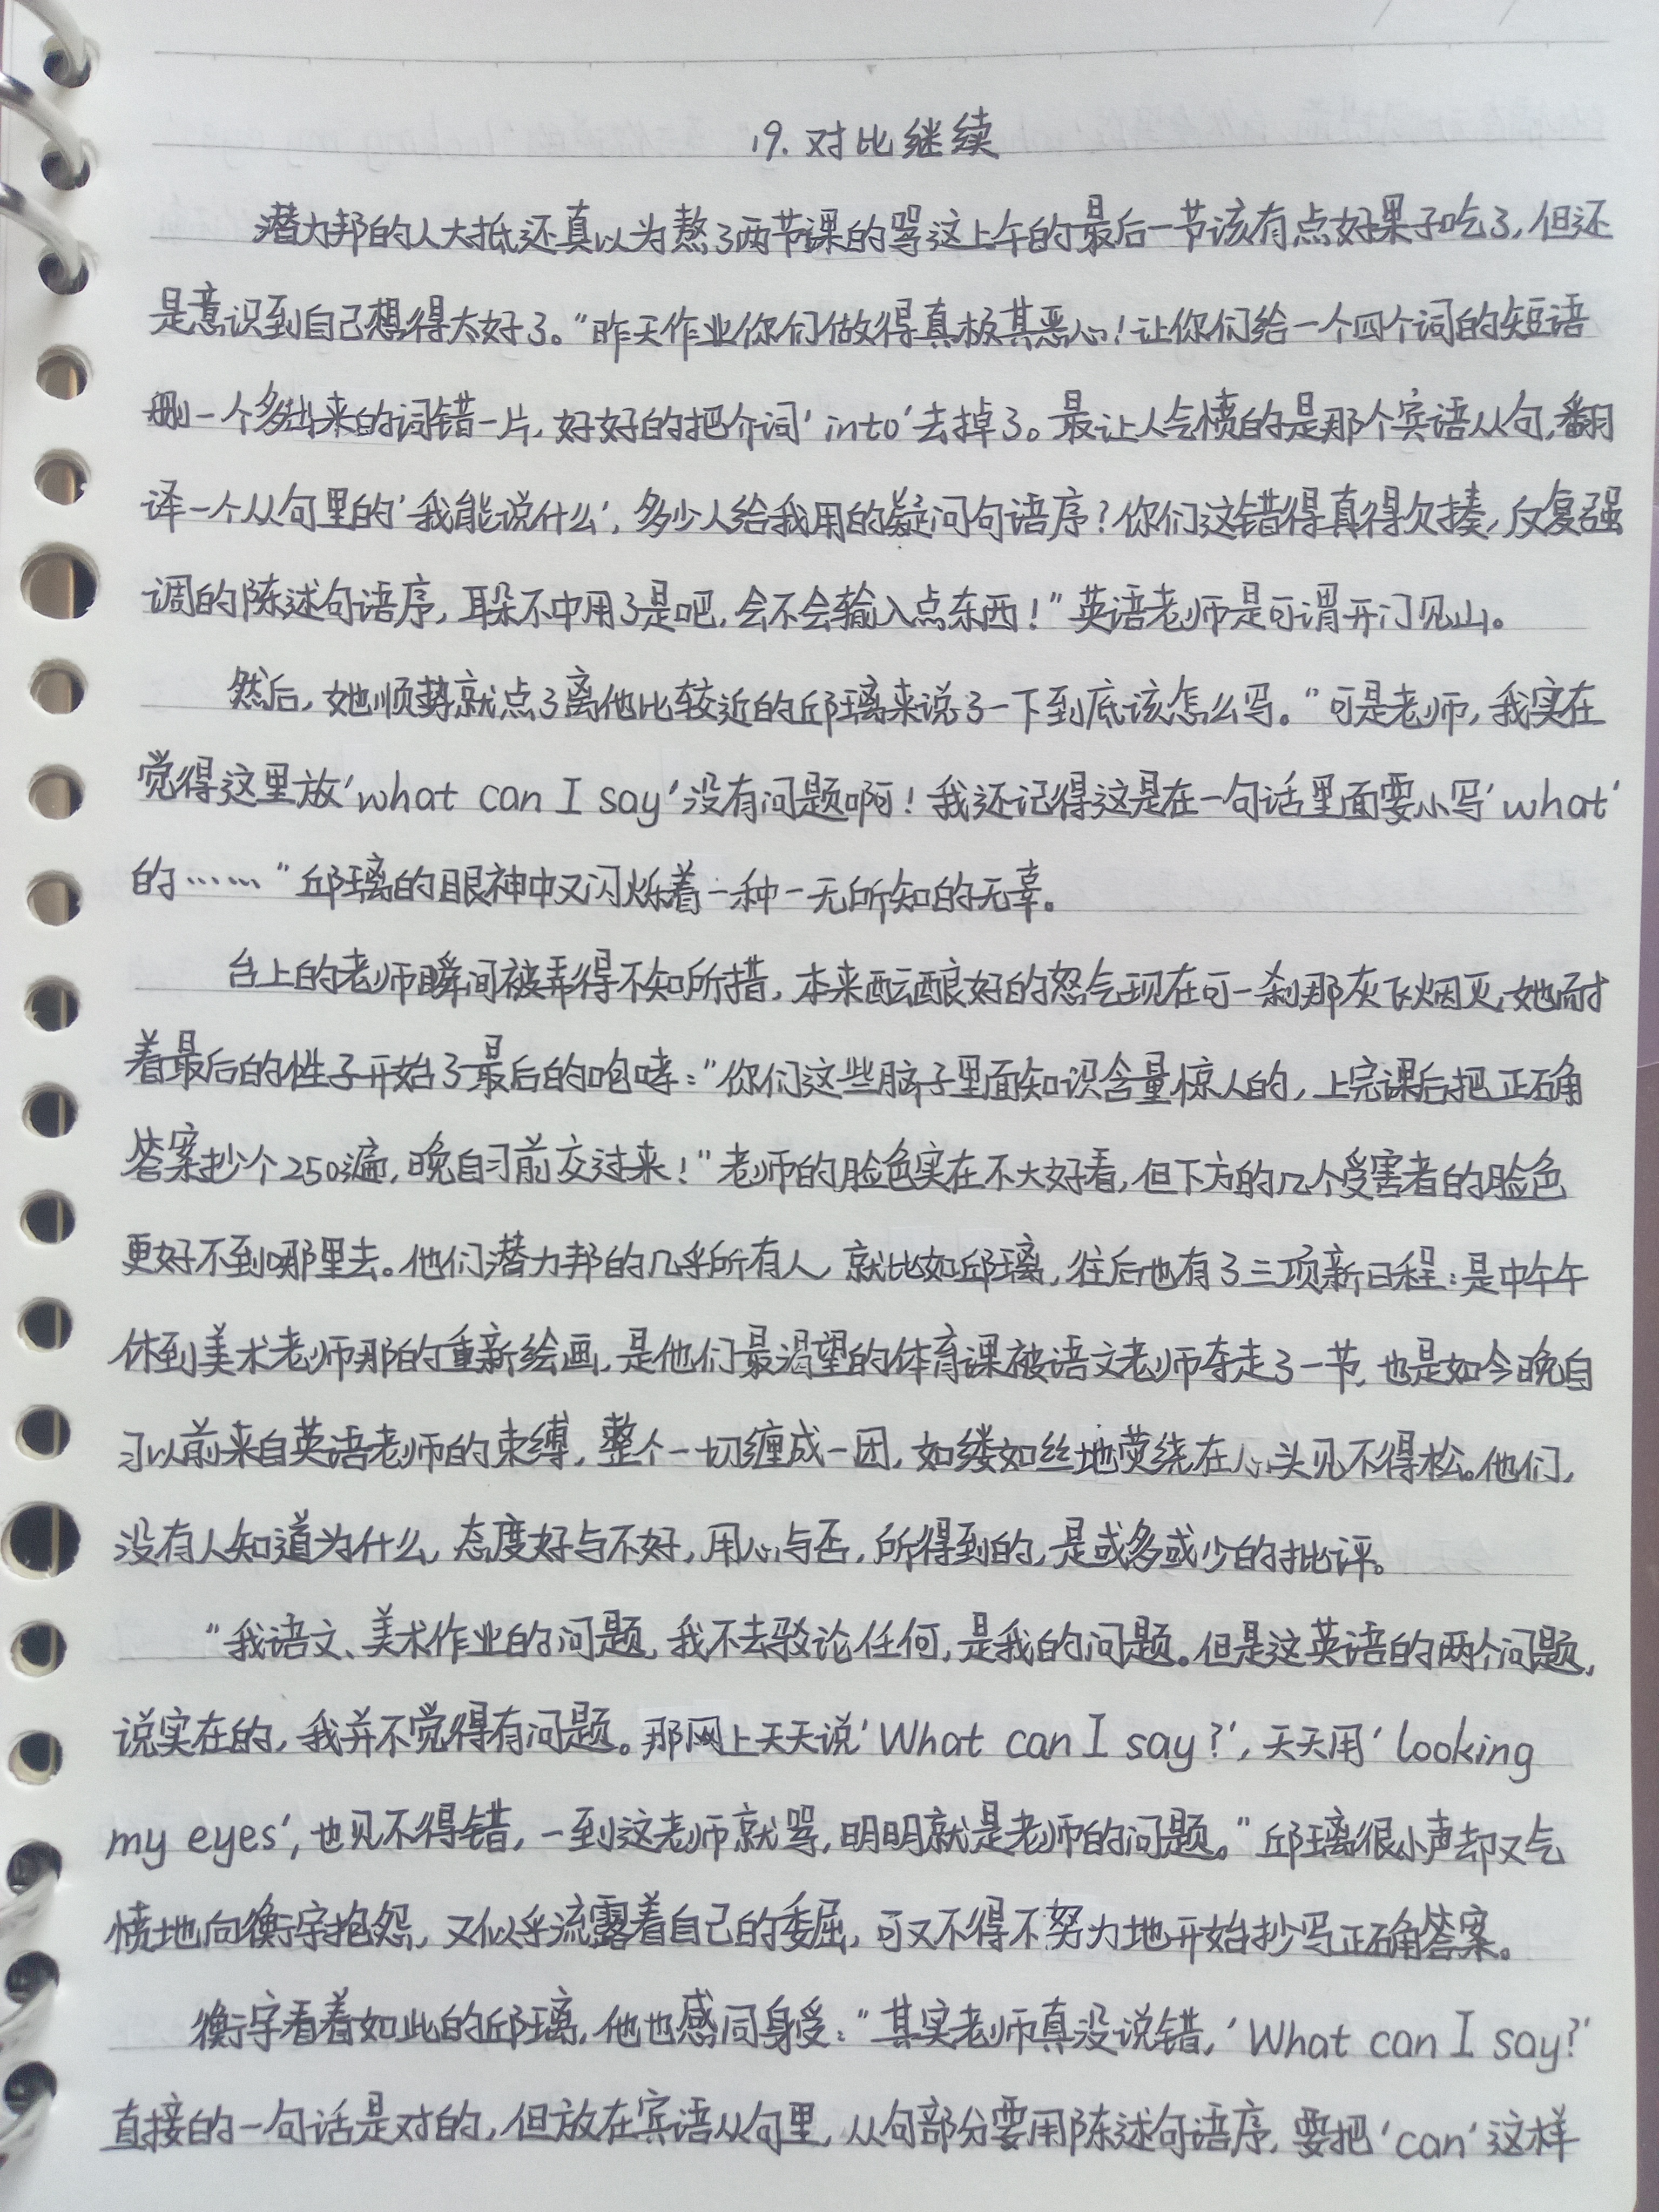 19. 对比继续
潜力邦的人大抵还真以为熬了两节课的骂这上午的最后一节该有点好果子吃了，但还
是意识到自己想得太好了。“昨天作业你们做得真极其恶心！让你们给一个四个词的短语
删一个多出来的词错一片，好好的把介词‘into’去掉了。最让人气愤的是那个宾语从句，翻
译一个从句里的‘我能说什么’，多少人给我用的疑问句语序？你们这错得真得欠揍，反复强
调的陈述句语序，耳朵不中用了是吧，会不会输入点东西！”英语老师是可谓开门见山。
然后，她顺势就点了离他比较近的邱璃来说了一下到底该怎么写。“可是老师，我实在
觉得这里放‘what can I say’没有问题啊！我还记得这是在一句话里面要小写‘what’
的……”邱璃的眼神中又闪烁着一种一无所知的无辜。
台上的老师瞬间被弄得不知所措，本来酝酿好的怒气现在可一刹那灰飞烟灭，她耐
着最后的性子开始了最后的咆哮：“你们这些脑子里面知识含量惊人的，上完课后把正确
答案抄个250遍，晚自习前交过来！”老师的脸色实在不大好看，但下方的几个受害者的脸色
更好不到哪里去。他们潜力邦的几乎所有人，就比如邱璃，往后也有了三项新日程：是中午午
休到美术老师那的重新绘画，是他们最渴望的体育课被语文老师夺走了一节，也是如今晚自
习以前来自英语老师的束缚，整个一切缠成一团，如缕如丝地荧绕在心头见不得松。他们，
没有人知道为什么，态度好与不好，用心与否，所得到的，是或多或少的批评。
“我语文、美术作业的问题，我不去驳论任何，是我的问题。但是这英语的两个问题，
说实在的，我并不觉得有问题。那网上天天说‘What can I say?’，天天用‘looking
my eyes’，也见不得错，一到这老师就骂，明明就是老师的问题。”邱璃很小声却又气
愤地向衡宇抱怨，又似乎流露着自己的委屈，可又不得不努力地开始抄写正确答案。
衡宇看着如此的邱璃，他也感同身受：“其实老师真没说错，‘What can I say?’
直接的一句话是对的，但放在宾语从句里，从句部分要用陈述句语序，要把‘can’这样